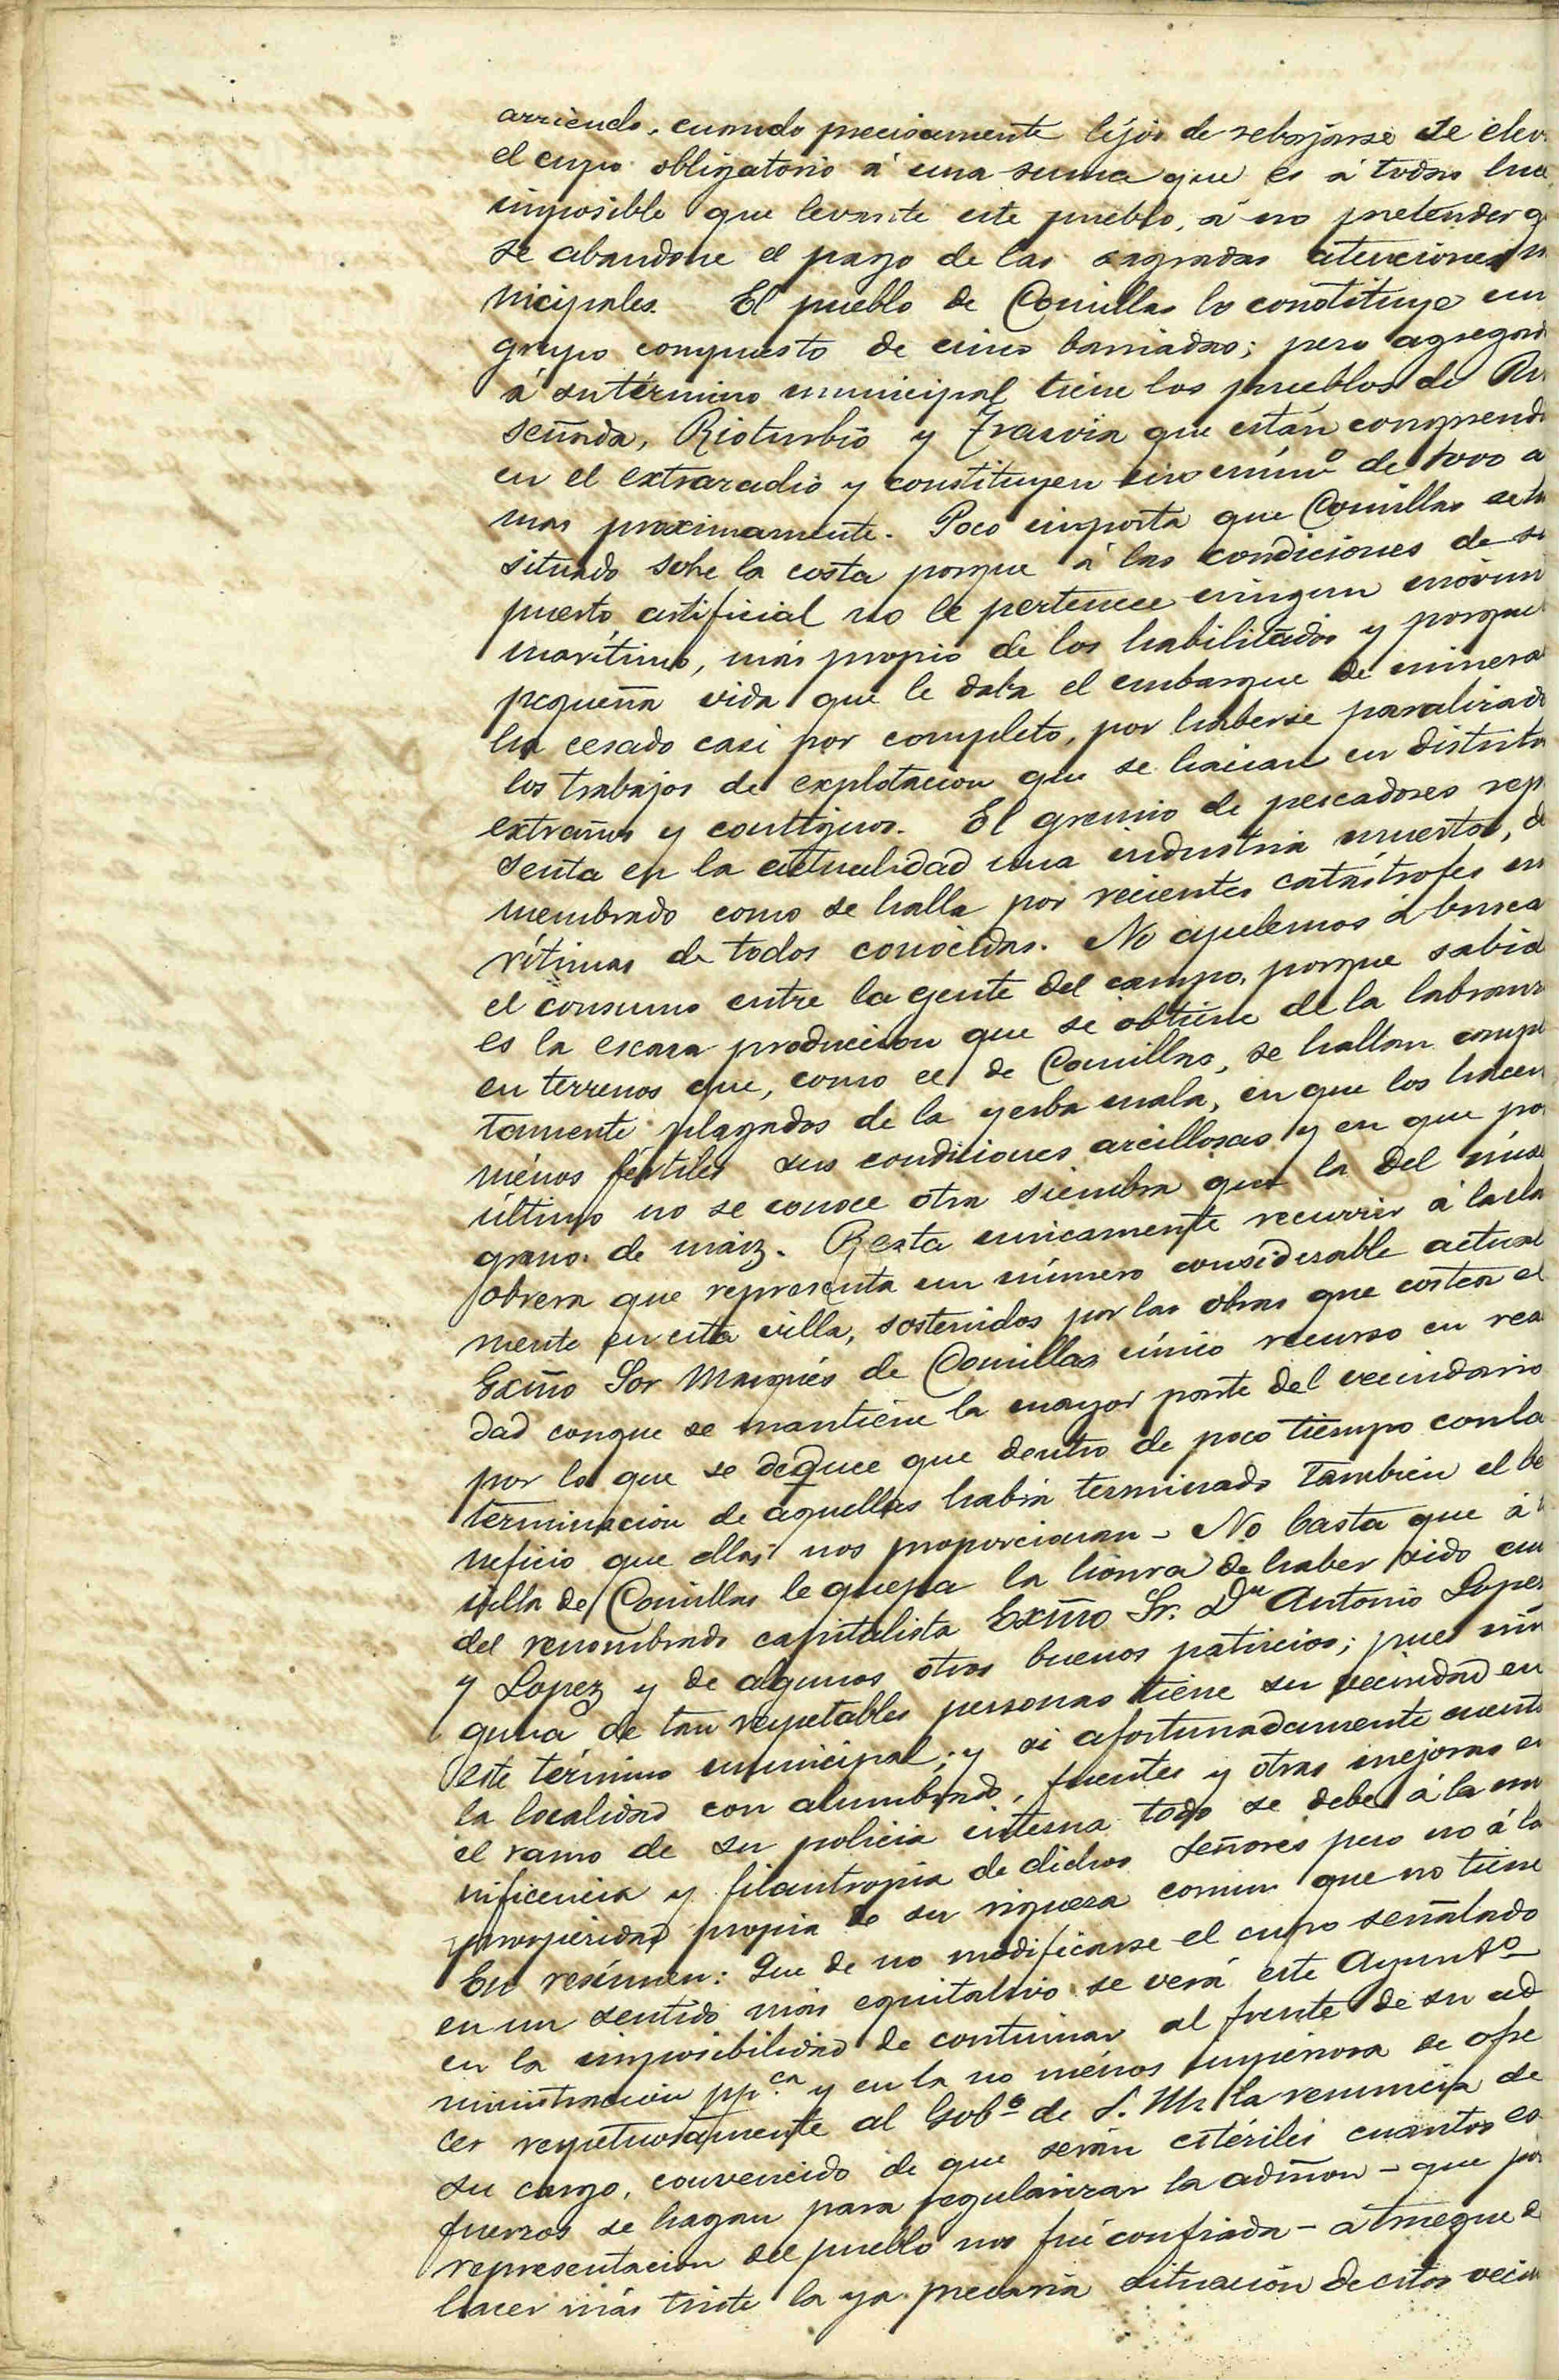 arriendo, cuando precisamente léjos de rebajarse se elev
el cupo obligatorio á una suma que es á todas luc
imposible que levante este pueblo, á no pretender q
se abandone el pago de las sagradas atenciones m
nicipales. El pueblo de Comillas lo constituye un
grupo compuesto de cinco barriadas; pero agregad
á su término municipal tiene los pueblos de Ru
señada, Rioturbio y Trasvia que están comprendi
en el extraradio y constituyen un núm.º de 1000 a
mas proximamente. Poco importa que Comillas esta
situado sobre la costa porque á las condiciones de su
puerto artificial no le pertenece ningun movim
marítimo, más propio de los habilitados y porque
pequeña vida que le daba el embarque de minera
ha cesado casi por completo, por haberse paralizado
los trabajos de explotacion que se hacian en distrito
extraños y contiguos. El gremio de pescadores rep
senta en la actualidad una industria muerta, d
membrado como se halla por recientes catástrofes m
rítimas de todos conocidas. No apelemos á busca
el consumo entre la gente del campo, porque sabid
es la escasa produccion que se obtiene de la labranz
en terrenos que, como el de Comillas, se hallan comple
tamente plagados de la yerba mala, en que los hacen
ménos fértiles sus condiciones arcillosas y en que po
último no se conoce otra siembra que la del míse
grano de maiz. Resta unicamente recurrir á la cla
obrera que representa un número considerable actual
mente en esta villa, sostenidos por las obras que costea el
Excmo Sor Marqués de Comillas único recurso en rea
dad conque se mantiene la mayor parte del vecindario
por lo que se deduce que dentro de poco tiempo con la
terminacion de aquellas habrá terminado tambien el be
neficio que ellas nos proporcionan – No basta que á l
villa de Comillas le quepa la honra de haber sido cun
del renombrado capitalista Excmo Sr. Dn Antonio Lopez
y Lopez y de algunos otros buenos patricios; pues nin
guna de tan respetables personas tiene su vecindad en
este término municipal; y si afortunadamente cuenta
la localidad con alumbrado, fuentes y otras mejoras en
el ramo de su policia interna todo se debe á la mu
nificencia y filantropia de dichos Señores pero no á la
prosperidad propia de su riqueza comun que no tiene
En resúmen: Que de no modificarse el cupo señalado
en un sentido más equitativo se verá este Ayuntº
en la imposibilidad de continuar al frente de su ad
ministracion pp.ca y en la no ménos imperiosa de ofre
cer respetuosamente al Gobº de S. M. la renuncia de
su cargo, convencido de que serán estériles cuantos es
fuerzos se hagan para regularizar la admon – que por
representacion del pueblo nos fué confiada – á trueque de
hacer más triste la ya precaria situacion de estos vecin